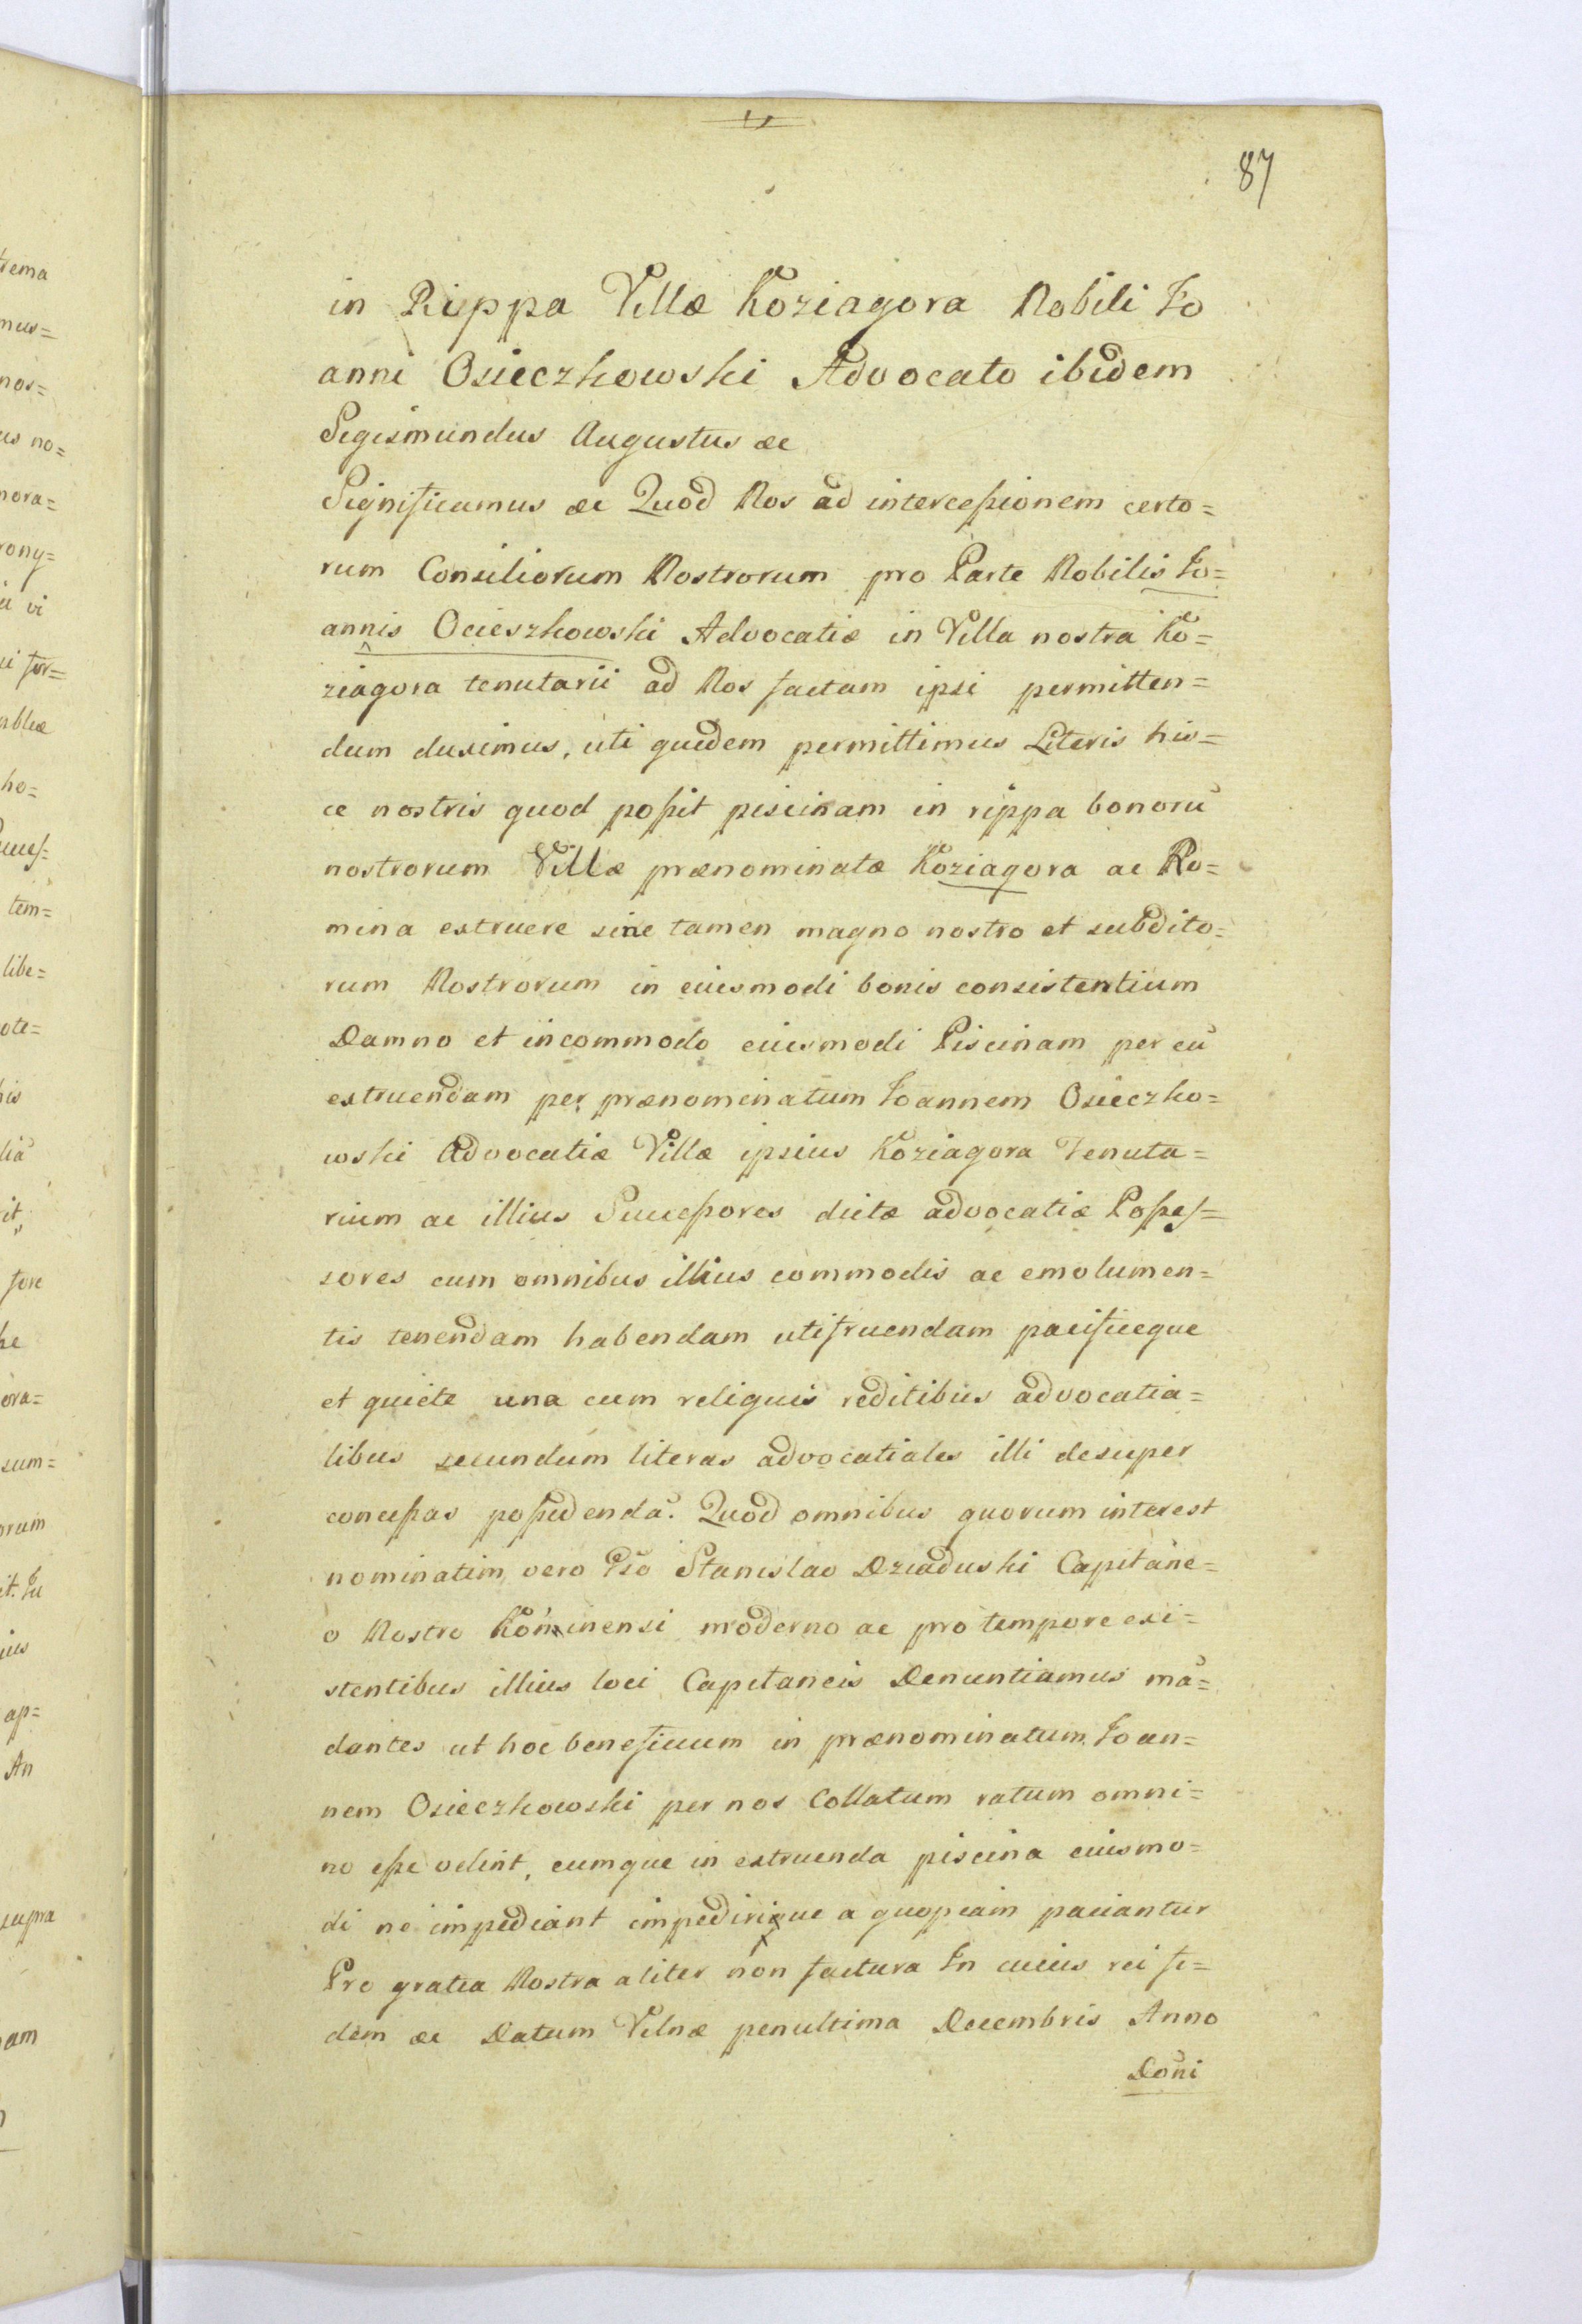 87
in Rippa Villæ Koziagora Nobili Jo
anni Osieczkowski Advocato ibidem
Sigismundus Augustus &c
Significamus &c Quod Nos ad intercessionem certo=
rum Consiliorum Nostrorum pro Parte Nobilis Jo=
annis Ocieszkowski Advocatiæ in Villa nostra Ko=
ziagora tenutarii ad Nos factam ipsi permitten=
dum duximus, uti quidem permittimus Literis his=
ce nostris quod possit piscinam in rippa bonorū
nostrorum Villæ prænominatæ Koziagora ac Ro=
mina extruere sine tamen magno nostro et subdito=
rum Nostrorum in eiusmodi bonis consistentium
Damno et incommodo eiusmodi Piscinam per eū
extruendam per prænominatum Joannem Osieczko=
wski Advocatiæ Villæ ipsius Koziagora Tenuta=
rium ac illius Successores dictæ advocatiæ Posses=
sores cum omnibus illius commodis ac emolumen=
tis tenendam habendam utifruendam pacificeque
et quiete una cum reliquis reditibus advocatia=
libus secundum literas advocatiales illi desuper
concessas possidendā. Quod omnibus quorum interest
nominatim vero Gso Stanislao Dziaduski Capitane=
o Nostro Koninensi moderno ac pro tempore exi=
stentibus illius loci Capitaneis Denuntiamus mā=
dantes ut hoc beneficium in prænominatum Joan=
nem Osieczkowski per nos Collatum ratum omni=
no esse velint, eumque in extruenda piscina eiusmo=
di ne impediant impedirique a quopiam paciantur
Pro gratia Nostra aliter non factura In cuius rei fi=
dem &c Datum Vilnæ penultima Decembris Anno
Dōni